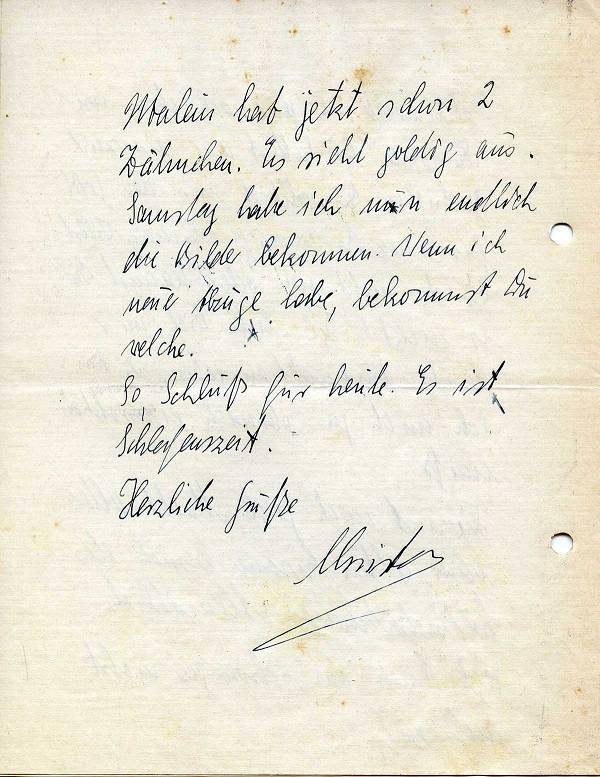 hat jetzt schon 2
Zähnchen. Es sieht goldig aus.
Samstag habe ich nun endlich
die Bilder bekommen. Wenn ich
neue Abzüge habe, bekommst Du
welche.
So, Schluß für heute. Es ist
Schlafenszeit.
Herzliche Grüße